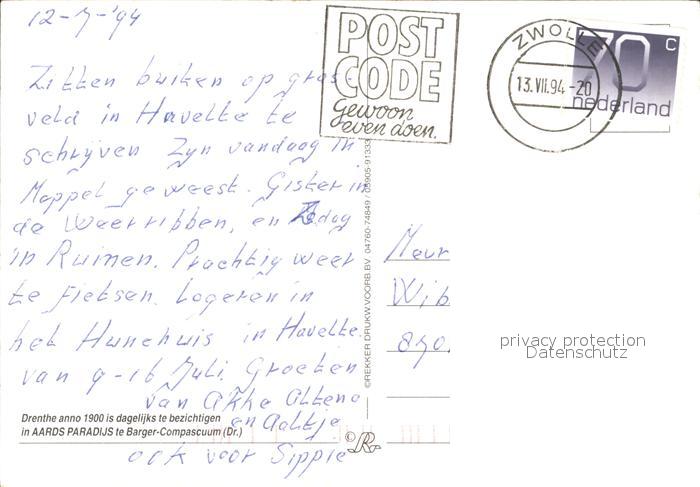 12-7-'94
Zitten buiten op gras-
veld in Havelte te
schrijven Zyn vandaag in
Meppel geweest. Gister in
de Weerribben, en Zodag
in Ruinen. Prachtig weer
te fietsen. Logeren in
het Hunehuis in Havelte.
van 9-16 Juli. Groeten
van Akke Altena
en Aaltje
ook voor Sippie
Drenthe anno 1900 is dagelijks te bezichtigen
in AARDS PARADIJS te Barger-Compascuum (Dr.)
©REKKER DRUKW.VOORB.BV 04760-74849 / 05905-91333
© R
POST
CODE
gewoon
even doen.
ZWOLLE
13.VII.94-20
70 c
nederland
Mevr
Wib
privacy protection
Datenschutz